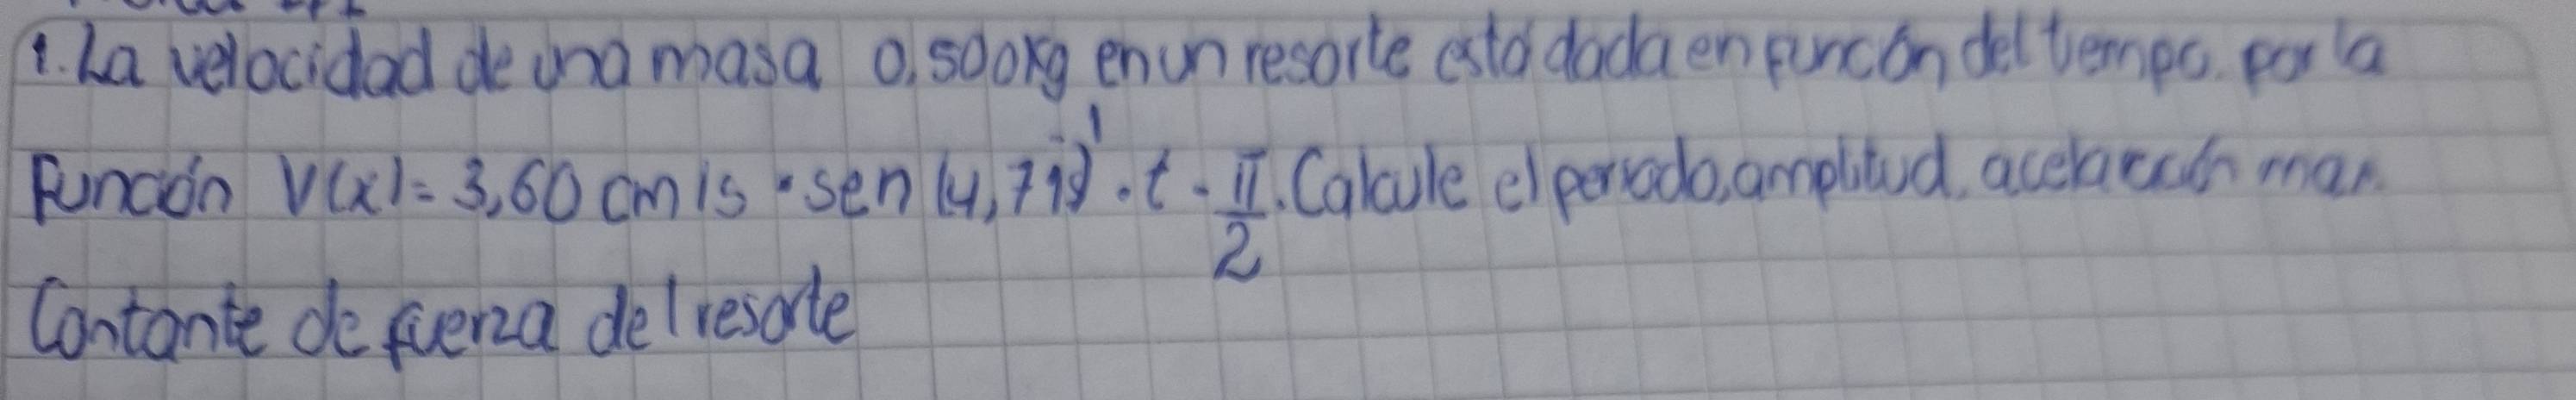 1. La velocidad de una masa 0,500kg en un resorte está dada en función del tiempo. por la
Función V(x)= 3,60 cm/s · sen (4,71s)⁻¹ · t - π/2. Calcule el periodo, amplitud, aceleración max.
Contante de fuerza del resorte